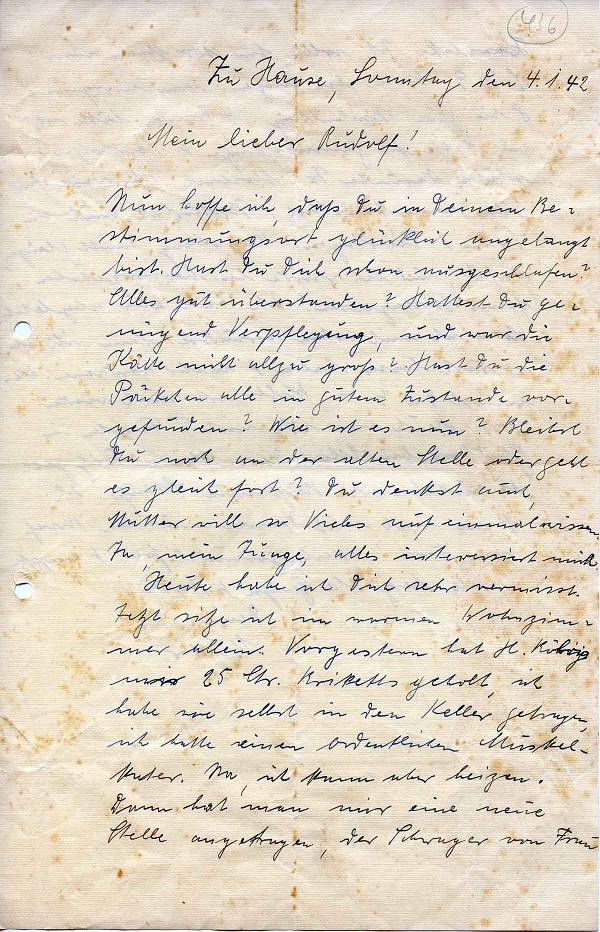 436
Zu Hause, Sonntag den 4.1.42
Mein lieber Rudolf!
Nun hoffe ich, daß Du in Deinem Be-
stimmungsort glücklich angelangt
bist. Hast Du Dich schon ausgeschlafen?
Alles gut überstanden? Hattest Du ge-
nügend Verpflegung, und war die
Kälte nicht allzu groß? Hast Du die
Päckchen alle in gutem Zustande vor-
gefunden? Wie ist es nun? Bleibst
Du noch an der alten Stelle oder geht
es gleich fort? Du denkst auch,
Mutter will so Vieles auf einmal wissen.
Ja, mein Junge, alles interessiert mich.
Heute habe ich Dich sehr vermisst.
Jetzt sitze ich im warmen Wohnzim-
mer allein. Vorgestern hat H.
mir 25 Ctr. Briketts geholt, ich
habe sie selbst in den Keller getragen,
ich hatte einen ordentlichen Muskel-
kater. Na, ich kann aber heizen.
Dann hat man mir eine neue
Stelle angetragen, der Schwager von Frau